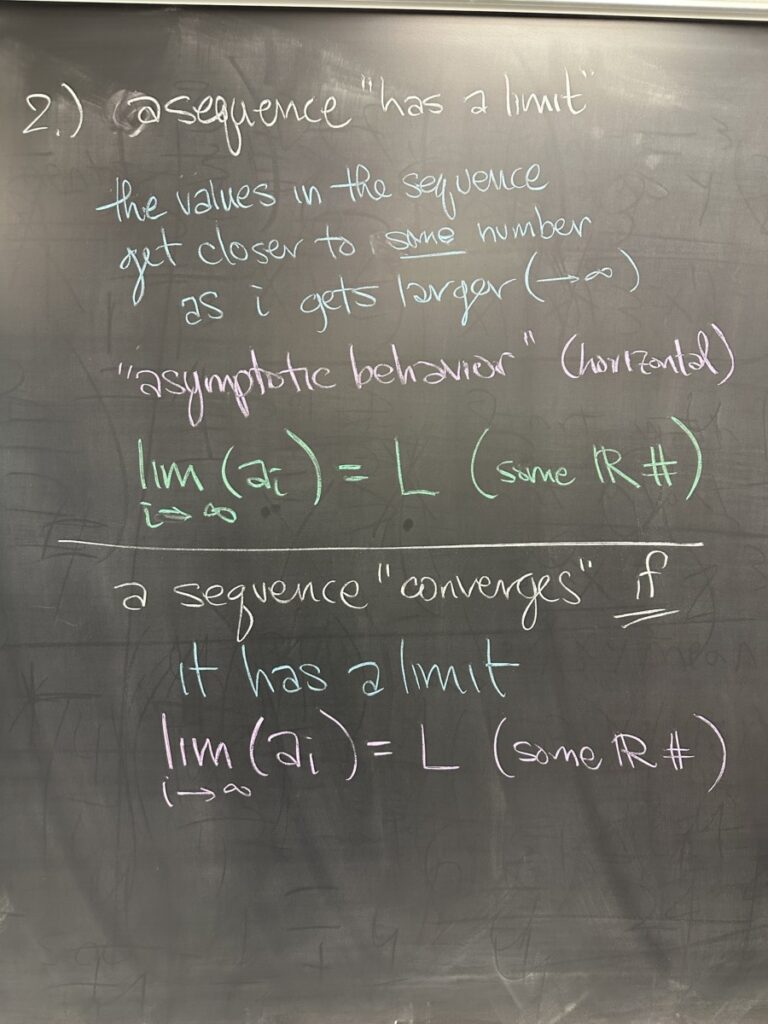 2.) a sequence "has a limit"
the values in the sequence
get closer to some number
as i gets larger (→∞)
"asymptotic behavior" (horizontal)
lim (ai) = L (some ℝ #)
i→∞
a sequence "converges" if
it has a limit
lim (ai) = L (some ℝ #)
i→∞